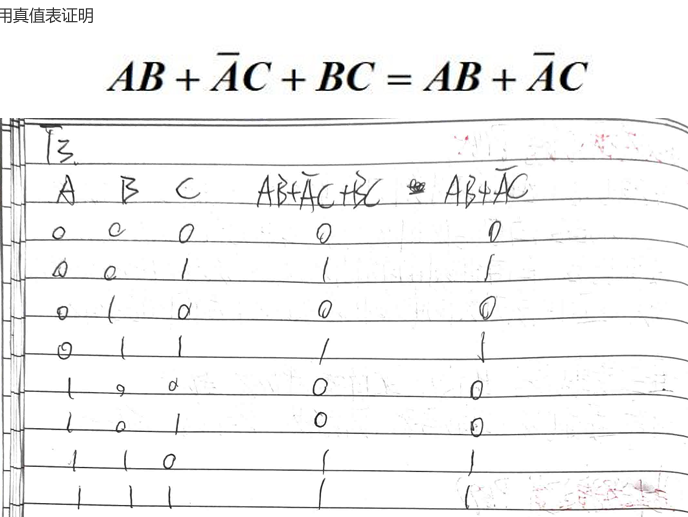 用真值表证明
AB + A̅C + BC = AB + A̅C
T3.
A B C AB+A̅C+BC AB+A̅C
0 0 0 0 0
0 0 1 1 1
0 1 0 0 0
0 1 1 1 1
1 0 0 0 0
1 0 1 0 0
1 1 0 1 1
1 1 1 1 1